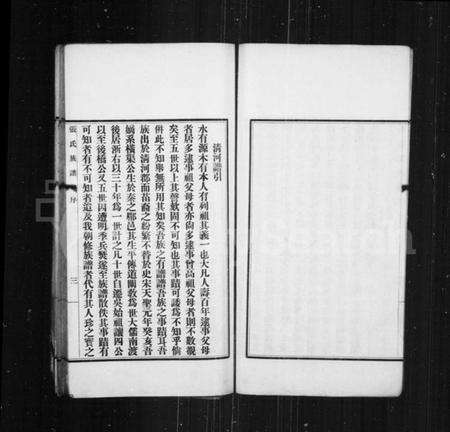 清河譜引
水有源木有本人有列祖其義一也大凡人壽百年逮事父母
者居多逮事祖父母者亦尚多逮事曾高祖父母者則不數覯
矣至五世以上其聲欬固不可知也其事蹟可諉為不知乎倘
併此不知畢無所用其知矣吾族之有譜譜吾族之事蹟耳吾
族出於清河郡而苗裔之紛繁不替於史宋天聖元年癸亥吾
嫡系橫渠公生於秦之郿邑其生平傳道關教為世大儒南渡
後居浙右以三十年為一世計之凡十世自遷吳始祖讓四公
以至後橋公又五世因遭明季兵燹遂至族譜散佚其事蹟有
可知者有不可知者迨及我朝修族譜者代有其人珍之寶之
張氏族譜 序 三